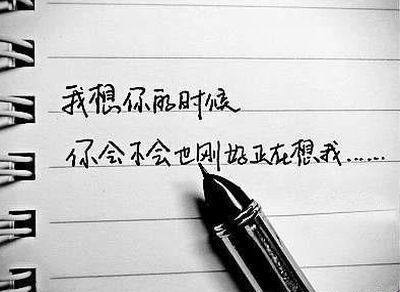 我想你的时候
你会不会也刚好正在想我……